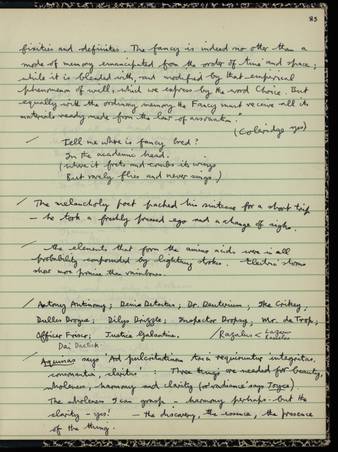 85
fixities and definites. The fancy is indeed no other than a
mode of memory emancipated from the order of time and space;
while it is blended with, and modified by that empirical
phenomenon of will, which we express by the word Choice. But
equally with the ordinary memory the Fancy must receive all its
materials ready made from the law of association."
(Coleridge
Tell me where is fancy bred?
In the academic head.
(where it frets and combs its wings
But rarely flies and never sings)
The melancholy poet packed his suitcase for a short trip
— he took a freshly pressed ego and a change of sighs.
the elements that form the amino acids were in all
probability compounded by lightning strokes. Electric storms
show more promise than rainbows.
Antony Antimony; Denis Detestus; Dr. Deuterium; The Crikey,
Dulles Drogue; Dilys Drizzle; Inspector Dropsy, Mr. de Trop,
Officer Frisor; Justice Galantine. / Regulus <
Dai Dactick
Aquinas says 'Ad pulcritudinem tria requiruntur integritas,
consonantia, claritas' : Three things are needed for beauty,
wholeness, harmony and clarity (or 'radiance' says Joyce).
The wholeness I can grasp — harmony perhaps — but the
clarity — yes! — the discovery, the essence, the presence
of the thing.